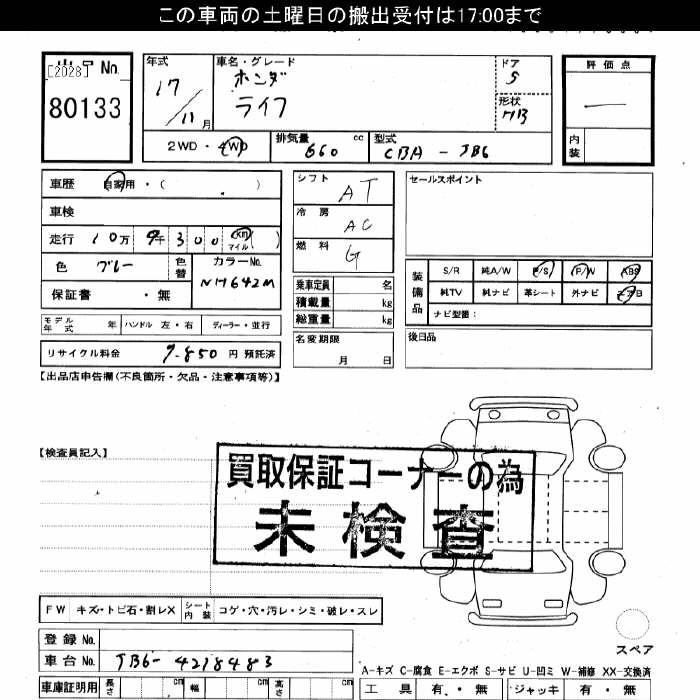 この車両の土曜日の搬出受付は17:00まで
出品No.
[2028]
80133
年式
17/11月
車名・グレード
ホンダ
ライフ
ドア
5
形状
HB
評価点
—
内装
2WD・4WD
排気量 660 cc
型式 CBA - JB6
車歴 自家用・( )
車検
走行 10万 9千 300 km マイル ( )
色 ブルー 色替 カラーNo. NH642M
保証書 ・無
シフト AT
冷房 AC
燃料 G
乗車定員 名
積載量 kg
総重量 kg
名変期限 月 日
セールスポイント
装備品
S/R 純A/W P/S P/W ABS
純TV 純ナビ 革シート 外ナビ エアB
ナビ型番:
後日品
モデル年式 年 ハンドル 左・右 ディーラー・並行
リサイクル料金 7,850 円 預託済
【出品店申告欄(不良箇所・欠品・注意事項等)】
【検査員記入】
買取保証コーナーの為
未検査
FW キズ・トビ石・割レX シート内装 コゲ・穴・汚レ・シミ・破レ・スレ
登録No.
車台No. JB6-4218483
スペア
A-キズ C-腐食 E-エクボ S-サビ U-凹ミ W-補修 XX-交換済
車庫証明用 長さ cm 幅 cm 高さ cm
工具 有・無 ジャッキ 有・無